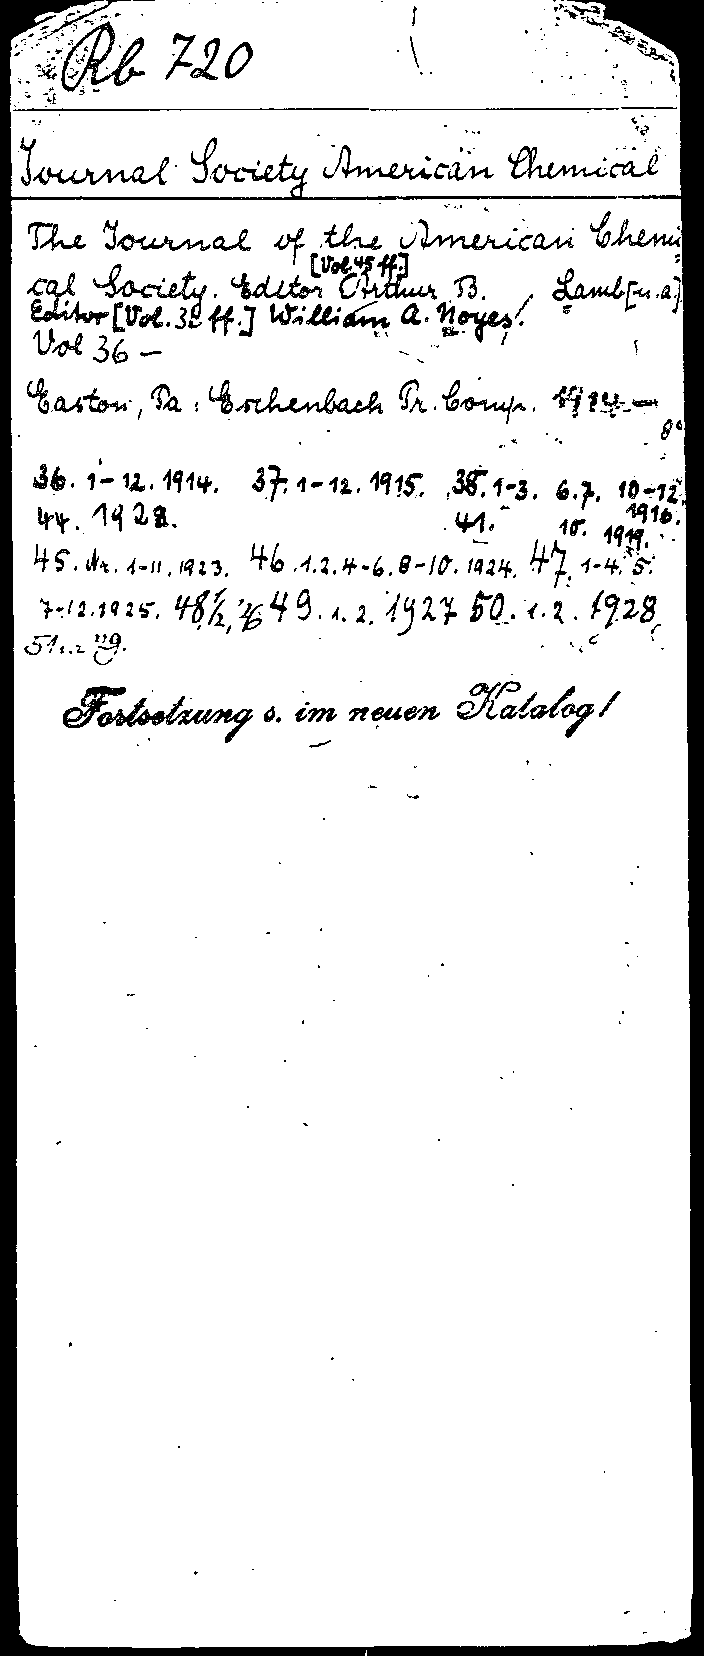 Rb 720
Journal Society American Chemical
The Journal of the American Chemi-
[Vol. 45 ff.]
cal Society. Editor Arthur B. Lamb [u. a.]
Editor [Vol. 32 ff.] William A. Noyes.
Vol 36 —
Easton, Pa: Eschenbach Pr. Comp. 1914 —
8°
36. 1-12. 1914. 37. 1-12. 1915. 38. 1-3. 6.7. 10-12.
1916.
44. 1922. 41. 10. 1919.
45. Nr. 1-11. 1923. 46. 1.2.4-6.8-10. 1924. 47. 1-4. 5.
7-12. 1925. 48 1/2, '26 49. 1. 2. 1927 50. 1. 2. 1928
Fortsetzung s. im neuen Katalog!